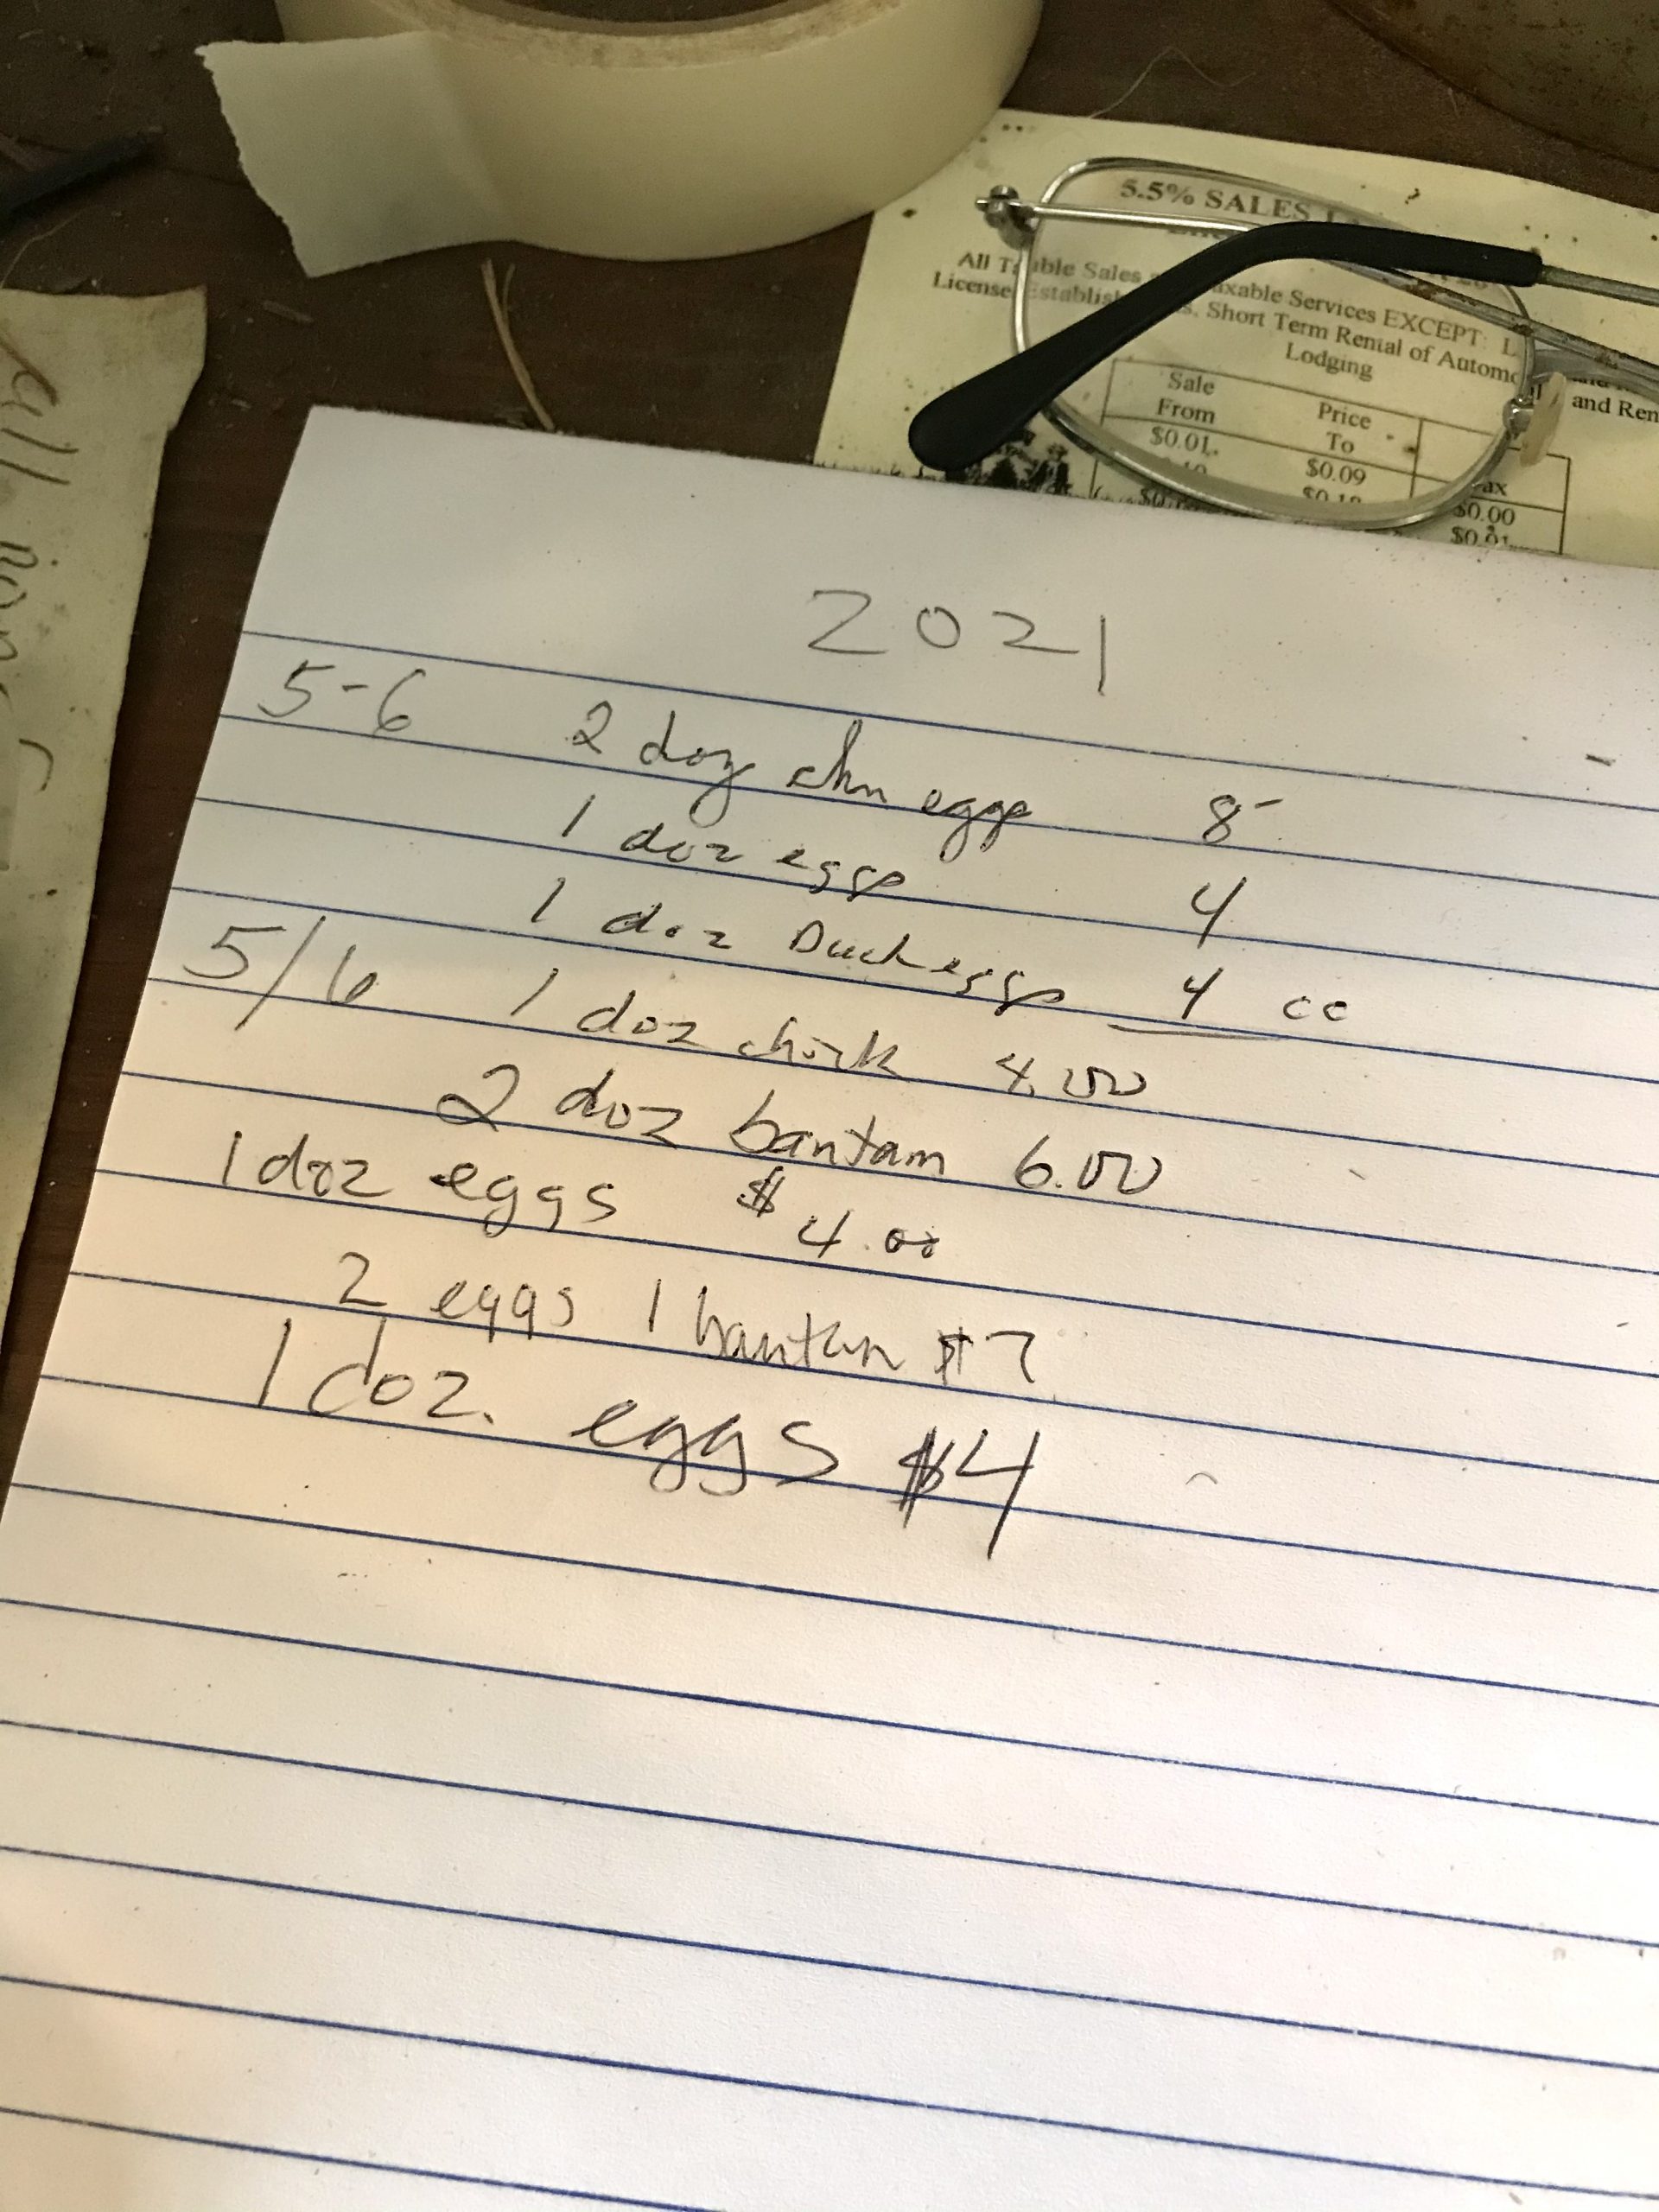 5.5% SALES
All Taxable Sales Taxable Services EXCEPT: L
License Establish s, Short Term Rental of Automo and Ren
Lodging
Sale Price
From To Tax
$0.01 $0.09 $0.00
$0.10 $0.18 $0.01
2021
5-6 2 doz chn eggs 8-
1 doz eggs 4
1 doz Duck eggs 4 cc
5/6 1 doz chick 4.00
2 doz bantam 6.00
1 doz eggs $ 4.00
2 eggs 1 bantam $7
1 doz. eggs $4